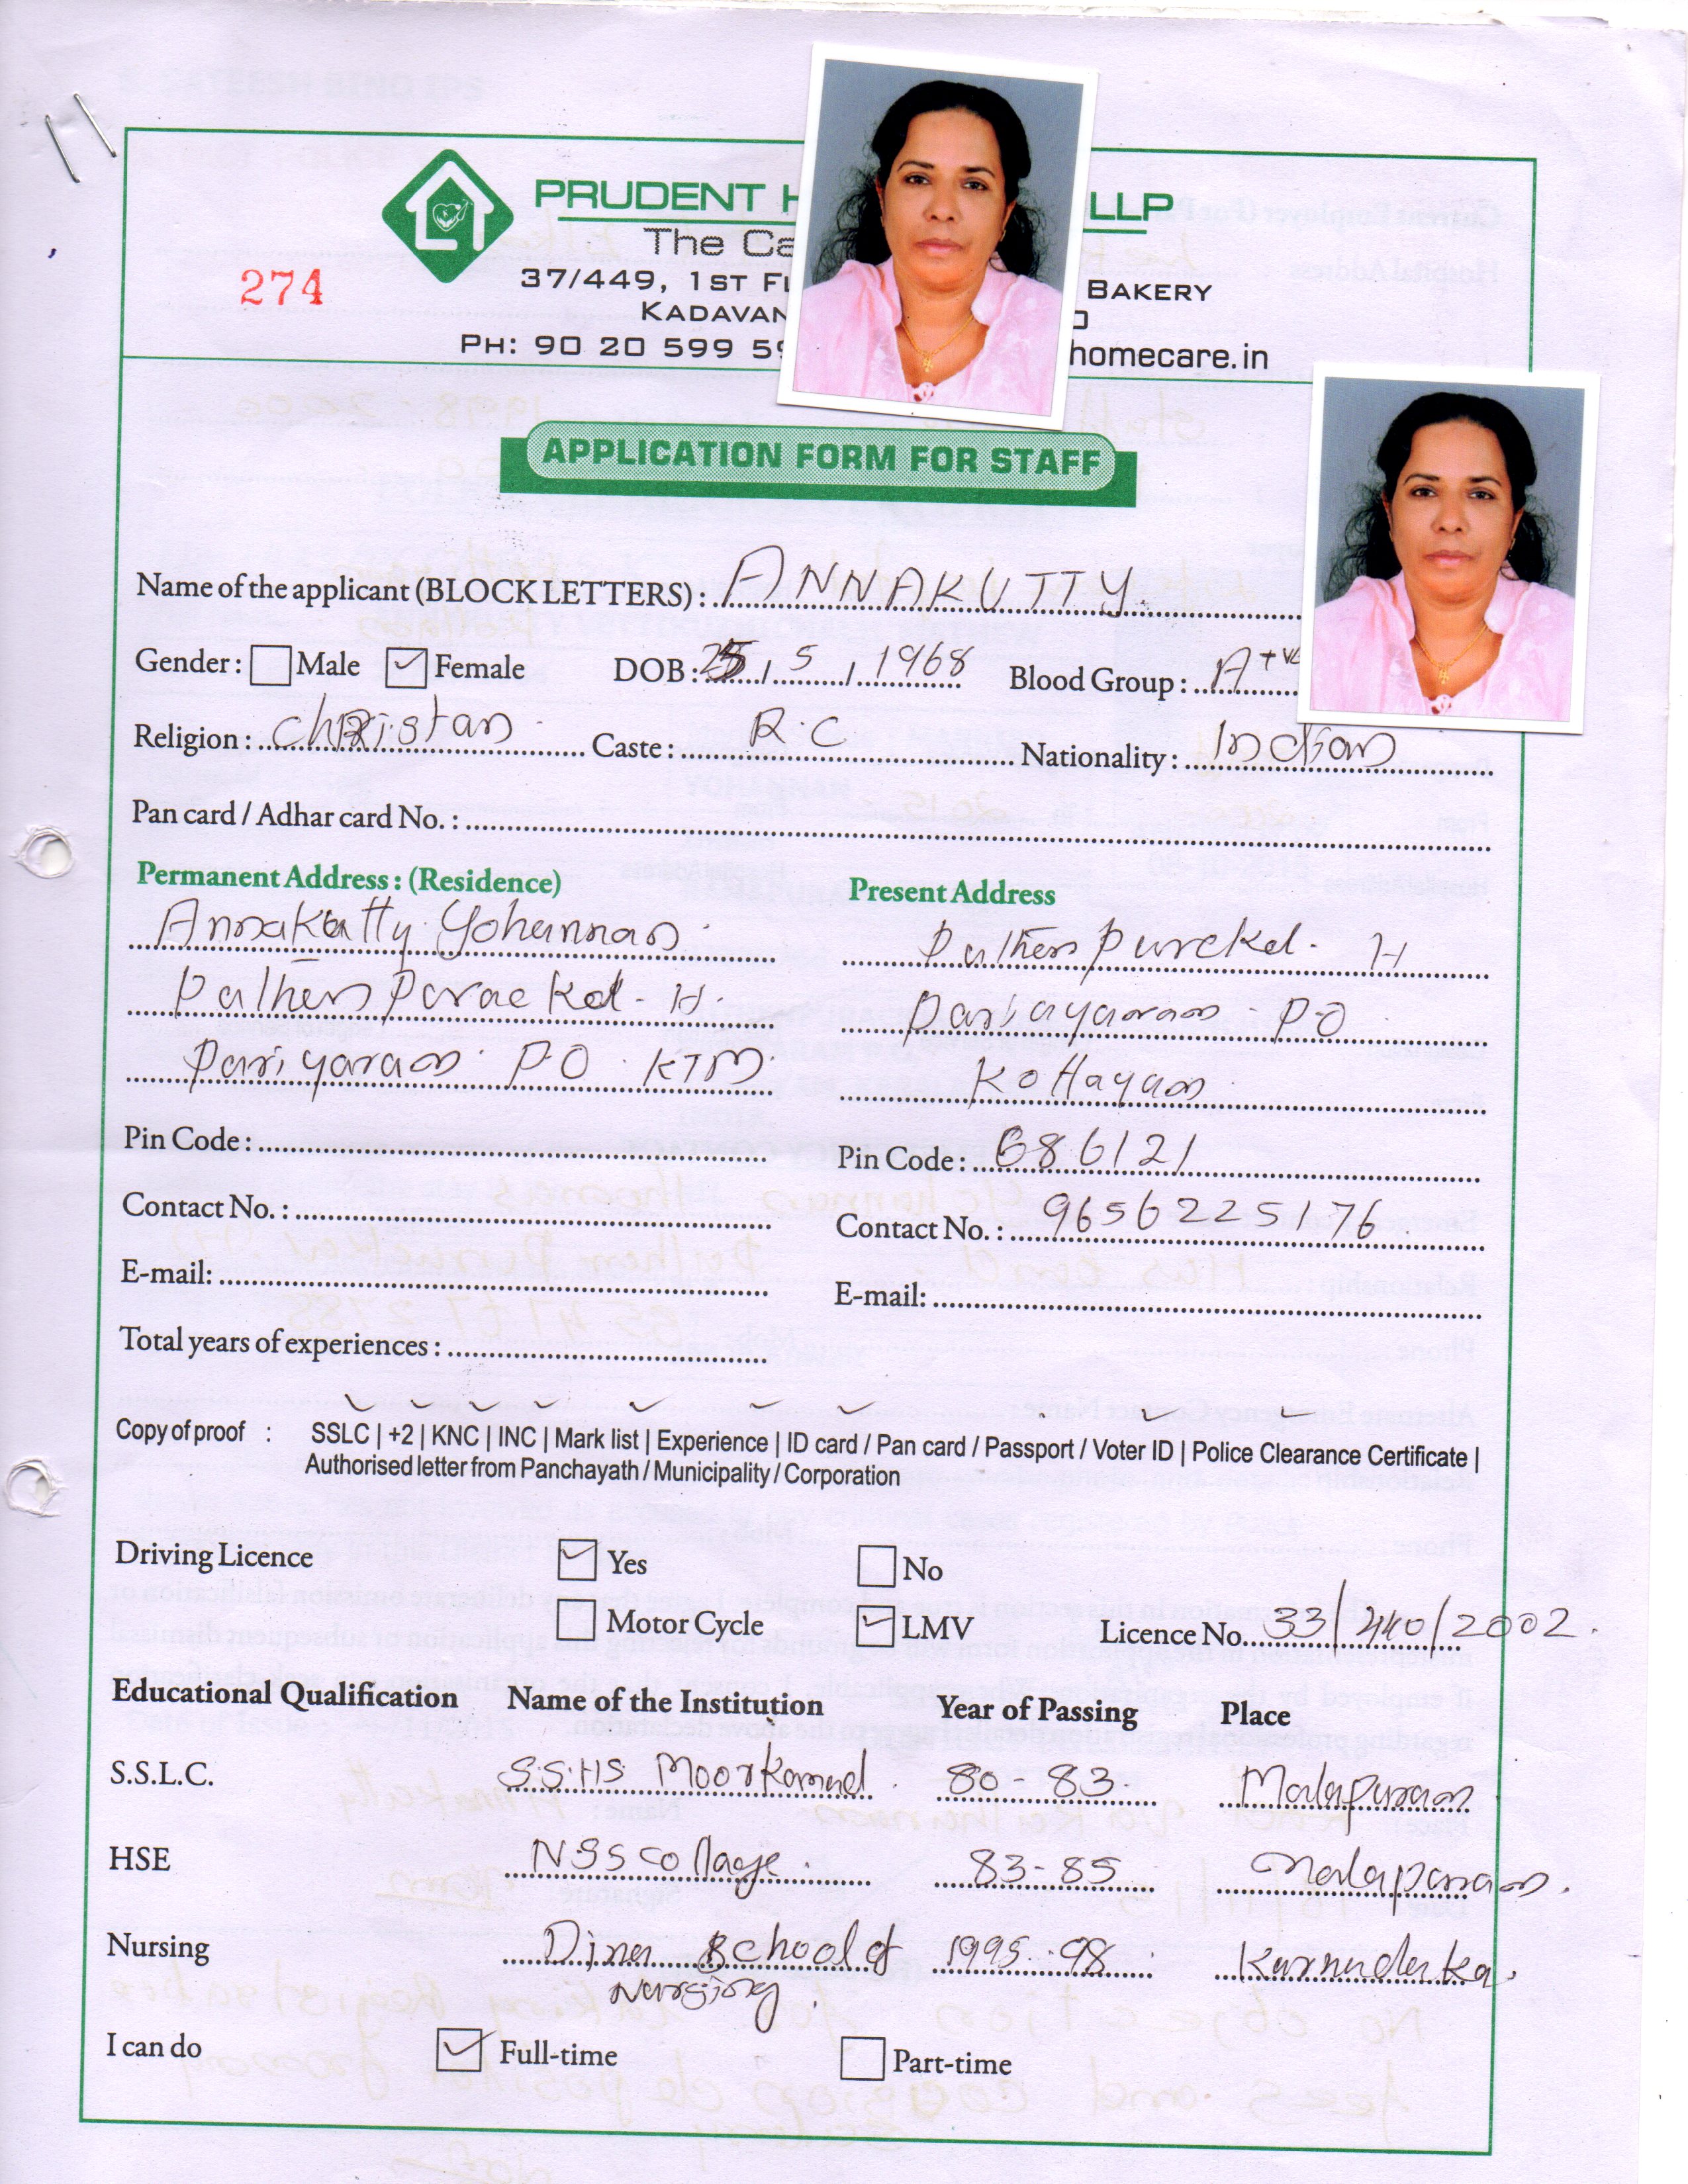 PRUDENT H LLP
The Ca
274
37/449, 1ST FL BAKERY
KADAVAN
PH: 90 20 599 59 homecare.in
APPLICATION FORM FOR STAFF
Name of the applicant (BLOCK LETTERS) : ANNAKUTTY.
Gender : Male Female DOB : 25 / 5 / 1968 Blood Group : A+ve
Religion : Christan Caste : R.C Nationality : Indian
Pan card / Adhar card No. :
Permanent Address : (Residence) Present Address
Annakutty Yohannan
Pariyaram PO KTM
Kottayam
Pin Code : Pin Code : 686121
Contact No. : Contact No. : 9656225176
E-mail: E-mail:
Total years of experiences :
Copy of proof : SSLC | +2 | KNC | INC | Mark list | Experience | ID card / Pan card / Passport / Voter ID | Police Clearance Certificate |
Authorised letter from Panchayath / Municipality / Corporation
Driving Licence Yes No
Motor Cycle LMV Licence No. 33/440/2002.
Educational Qualification Name of the Institution Year of Passing Place
S.S.L.C. S.S.HS 80-83. Malapuram
HSE NSS Collage. 83-85 Malapuram.
Nursing School of 1995-98
Nursing.
I can do Full-time Part-time